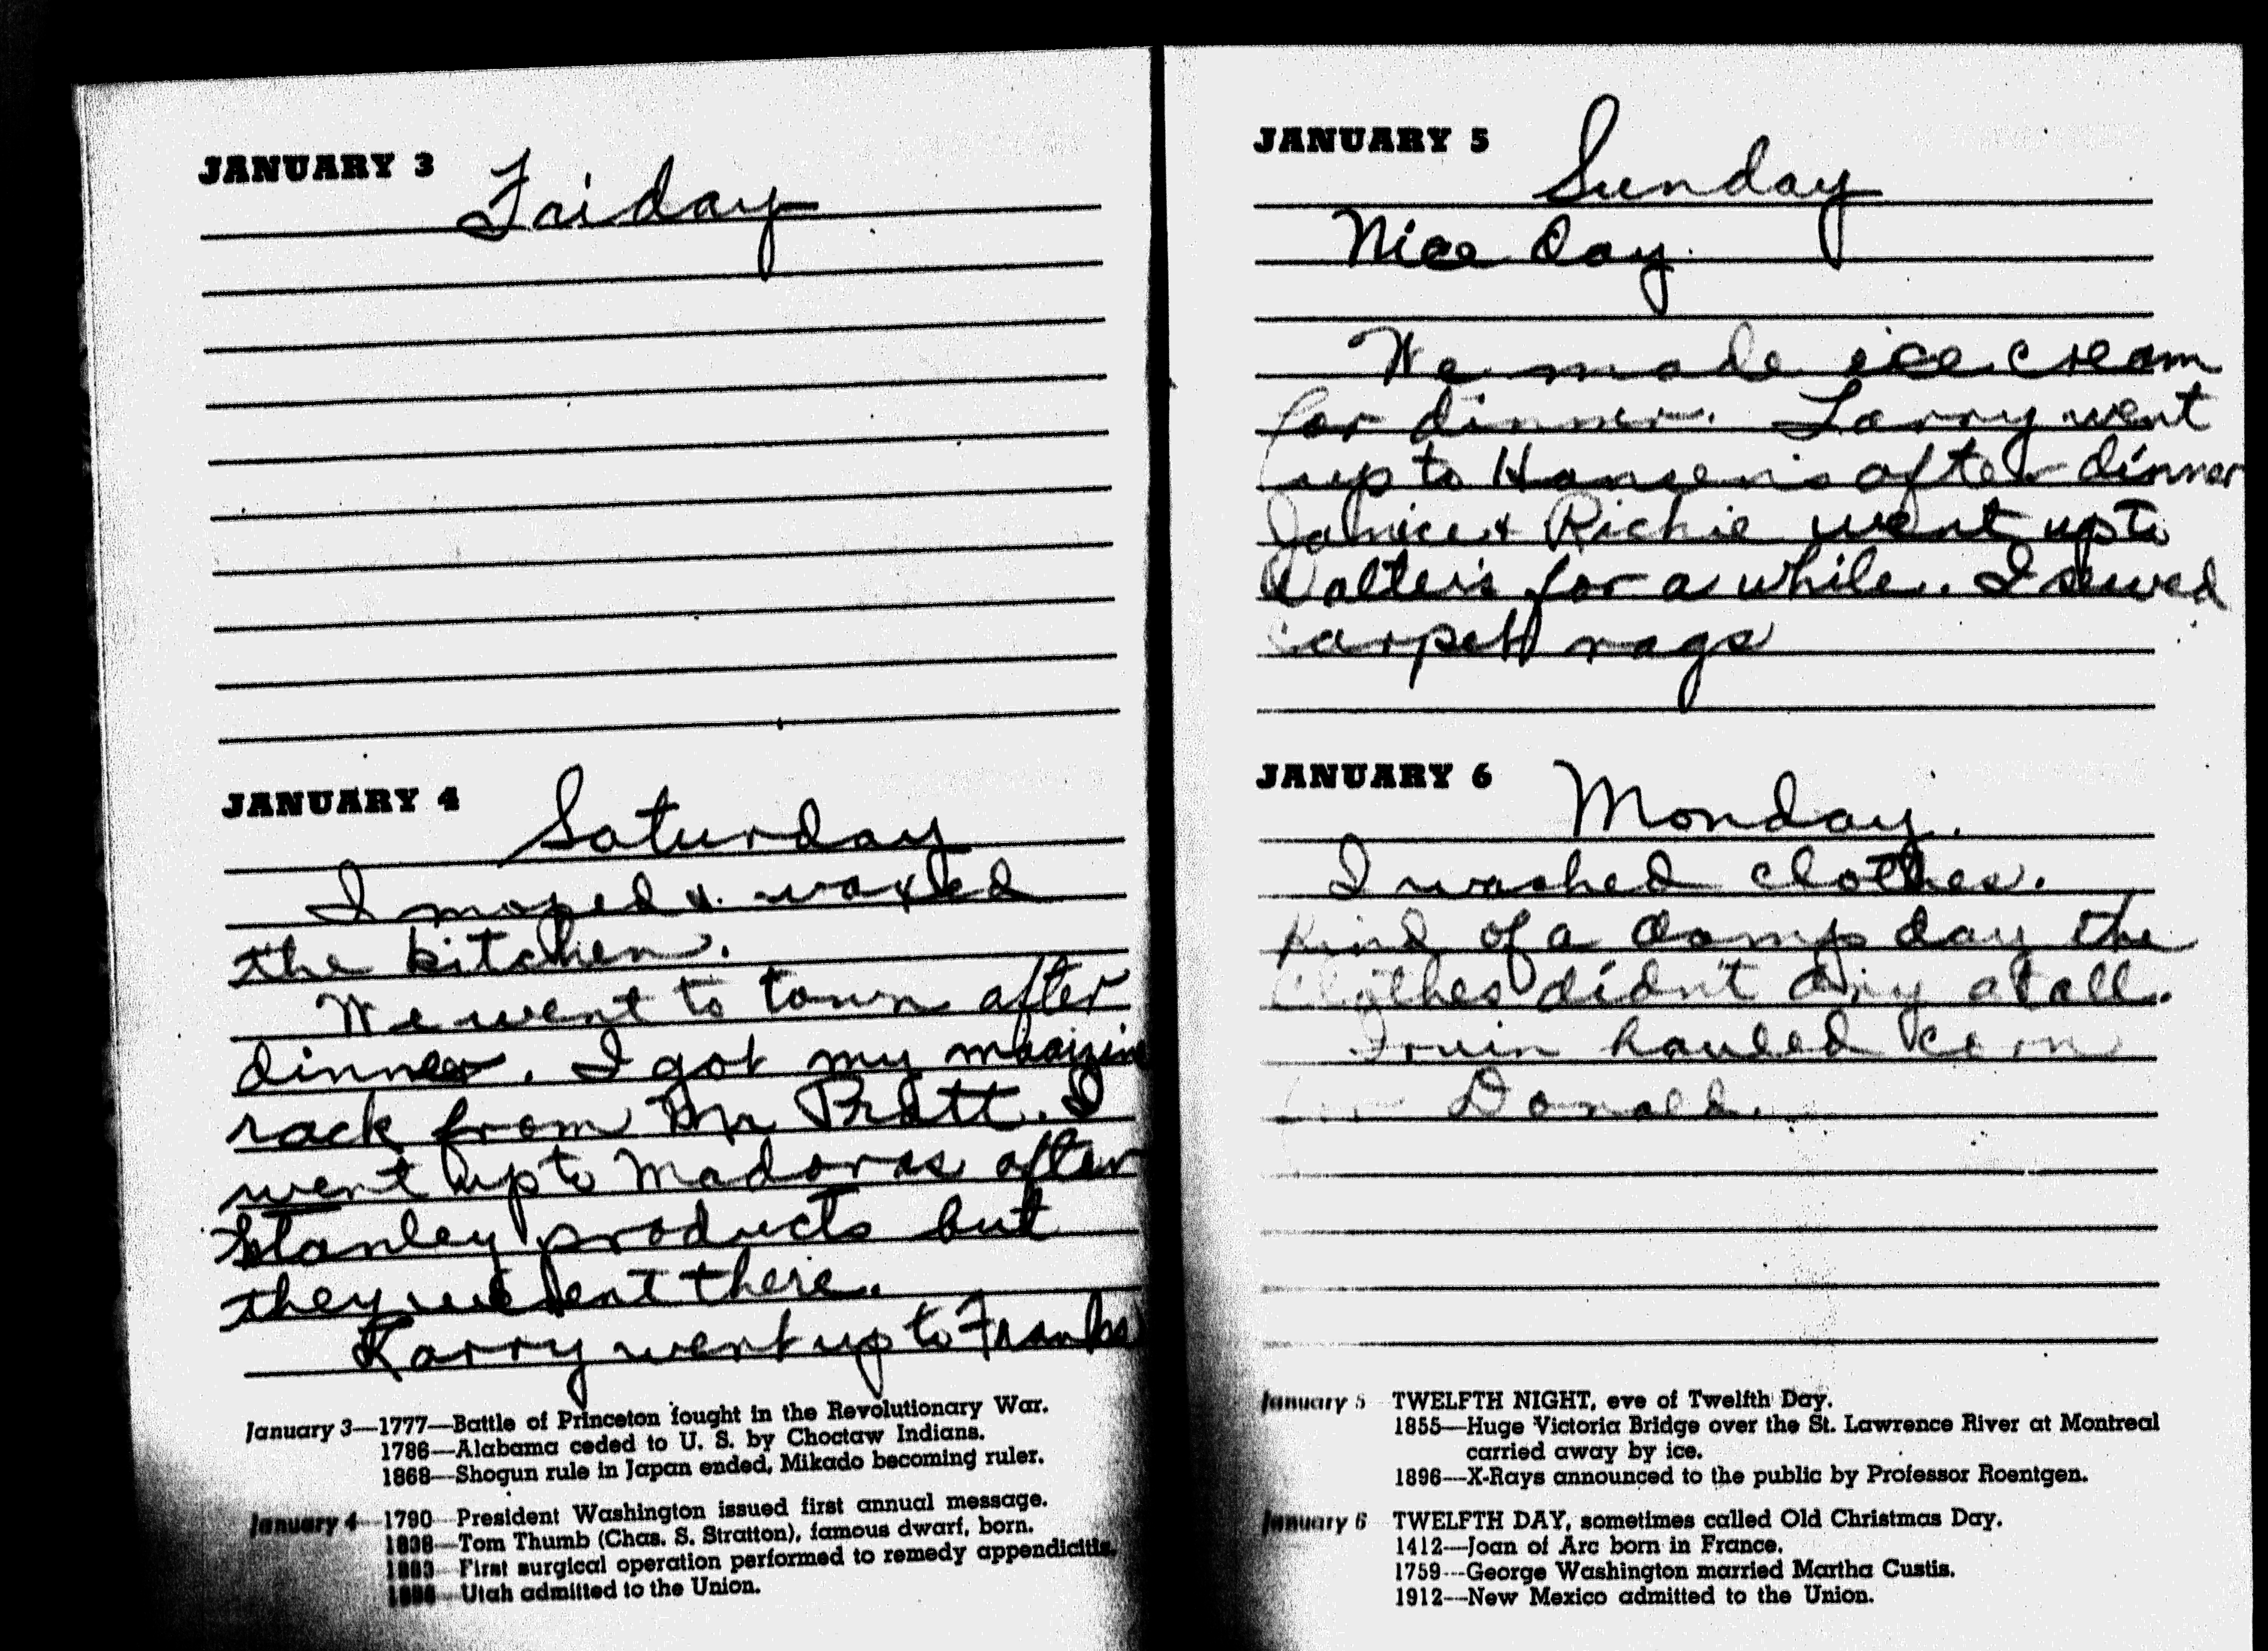 JANUARY 3
Friday
JANUARY 4
Saturday
I moped & waxed
the kitchen.
We went to town after
dinner. I got my
rack from Mr Pratt. I
went up to Madoras after
Stanley products but
they weren't there.
Larry went up to Franks
January 3—1777—Battle of Princeton fought in the Revolutionary War.
1786—Alabama ceded to U. S. by Choctaw Indians.
1868—Shogun rule in Japan ended, Mikado becoming ruler.
January 4—1790—President Washington issued first annual message.
1838—Tom Thumb (Chas. S. Stratton), famous dwarf, born.
First surgical operation performed to remedy appendicitis.
Utah admitted to the Union.
JANUARY 5
Sunday
Nice Day.
We made ice cream
for dinner. Larry went
up to Hansen's after dinner
Janice & Richie went up to
Walter's for a while. I sewed
carpet rags
JANUARY 6
Monday.
I washed clothes.
Kind of a damp day the
clothes didn't dry at all.
Irvin hauled corn
Donald.
January 5 TWELFTH NIGHT, eve of Twelfth Day.
1855—Huge Victoria Bridge over the St. Lawrence River at Montreal
carried away by ice.
1896—X-Rays announced to the public by Professor Roentgen.
January 6 TWELFTH DAY, sometimes called Old Christmas Day.
1412—Joan of Arc born in France.
1759—George Washington married Martha Custis.
1912—New Mexico admitted to the Union.